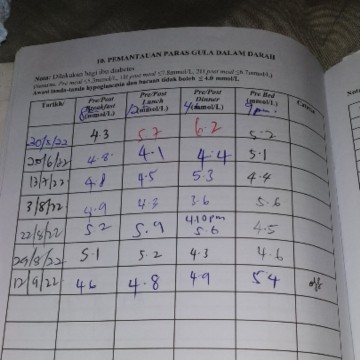 10. PEMANTAUAN PARAS GULA DALAM DARAH
Nota: Dilakukan bagi ibu diabetes
Awasi tanda-tanda hypoglycaemia dan bacaan tidak boleh ≤ 4.0 mmol/L)
Tarikh/ Pre/Post Breakfast (mmol/L) Pre/Post Lunch (mmol/L) Pre/Post Dinner (mmol/L) Pre Bed (mmol/L) Catatan
20/5/22 4.3 5.7 6.2 5.2
20/6/22 4.8 4.1 4.4 5.1
13/7/22 4.8 4.5 5.3 4.4
3/8/22 4.9 4.3 3.6 5.6
22/8/22 5.2 5.9 4.10pm 5.6 4.5
29/8/22 5.1 5.2 4.3 4.6
12/9/22 4.6 4.8 4.9 5.4